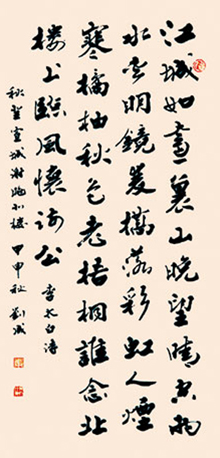 江城如畫裏山晚望晴空兩
水夾明鏡雙橋落彩虹人煙
寒橘柚秋色老梧桐誰念北
楼上臨風懷謝公 李太白詩
秋登宣城謝朓北樓 甲申秋